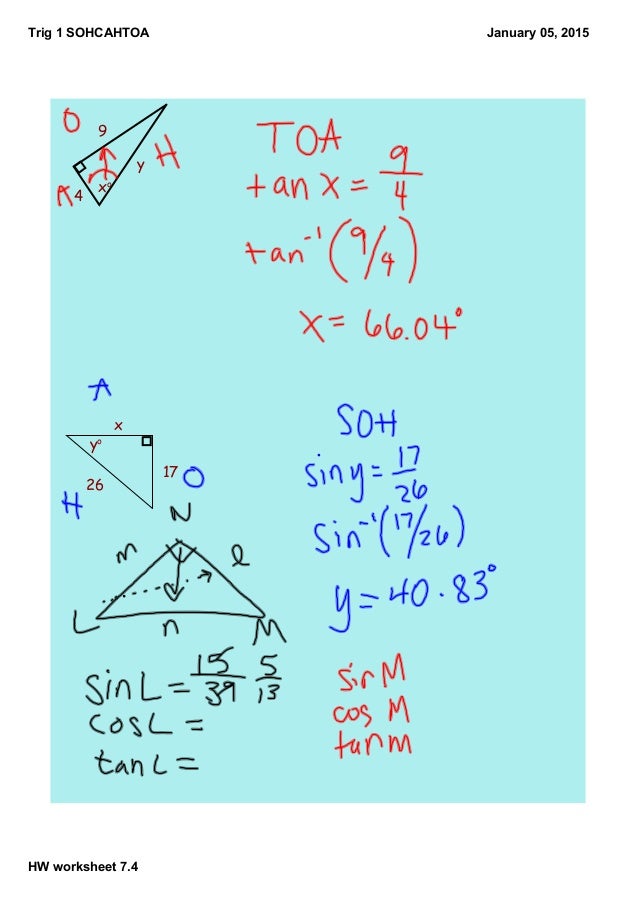 Trig 1 SOHCAHTOA January 05, 2015
O 9
y H
A 4 x°
TOA
tan x = 9/4
tan⁻¹(9/4)
x = 66.04°
A
x
y°
17 O
26
H
SOH
sin y = 17/26
sin⁻¹(17/26)
y = 40.83°
N
m l
L n M
sin L = 15/39 5/13
cos L =
tan L =
sin M
cos M
tan m
HW worksheet 7.4